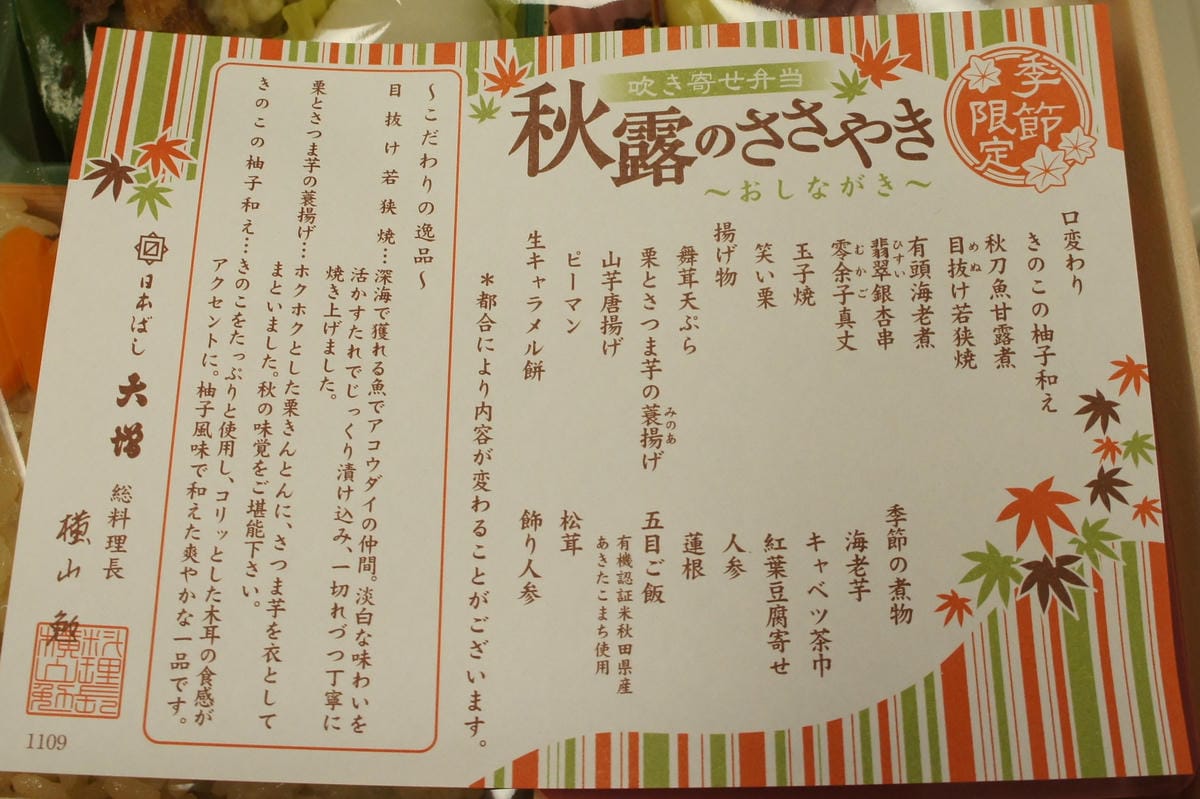 季節
限定
吹き寄せ弁当
秋露のささやき
～おしながき～
口変わり
きのこの柚子和え
秋刀魚甘露煮
目抜け若狭焼
めぬ
有頭海老煮
翡翠銀杏串
ひすい
零余子真丈
むかご
玉子焼
笑い栗
揚げ物
舞茸天ぷら
栗とさつま芋の蓑揚げ
みのあ
山芋唐揚げ
ピーマン
生キャラメル餅
季節の煮物
海老芋
キャベツ茶巾
紅葉豆腐寄せ
人参
蓮根
五目ご飯
有機認証米秋田県産
あきたこまち使用
松茸
飾り人参
＊都合により内容が変わることがございます。
～こだわりの逸品～
目抜け若狭焼…深海で獲れる魚でアコウダイの仲間。淡白な味わいを
活かすたれでじっくり漬け込み、一切れづつ丁寧に
焼き上げました。
栗とさつま芋の蓑揚げ…ホクホクとした栗きんとんに、さつま芋を衣として
まといました。秋の味覚をご堪能下さい。
きのこの柚子和え…きのこをたっぷりと使用し、コリッとした木耳の食感が
アクセントに。柚子風味で和えた爽やかな一品です。
日本ばし 大増 総料理長
横山
1109